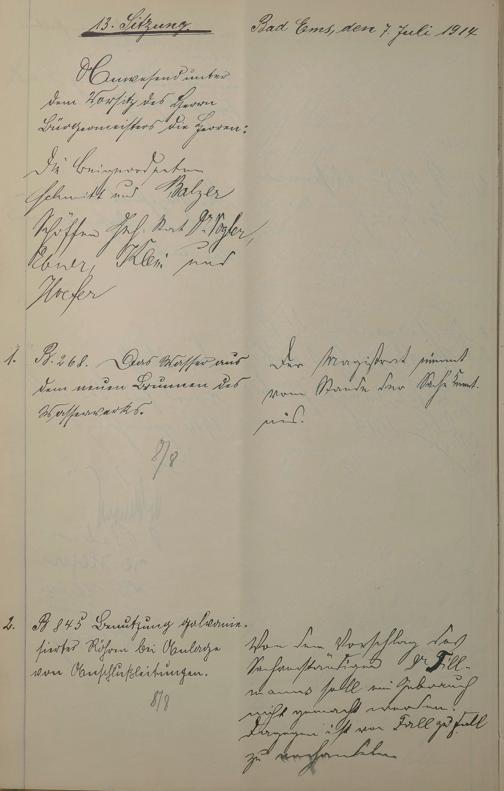 13. Sitzung.
Bad Ems, den 7. Juli 1914
Anwesend unter
dem Vorsitz des Herrn
Bürgermeisters die Herren:
Die Beigeordneten
Schmitt und Balzer
Schöffen Geh. Rat Dr. Vogler,
Klein und
Hoefer
1. B. 268. Das Wasser aus
dem neuen Brunnen des
Wasserwerks.
8/8
Der Magistrat nimmt
vom Stande der Sache Kennt-
nis.
2. B 845 Benutzung galvani-
sierter Röhren bei Anlage
von Anschlußleitungen.
8/8
Von dem Vorschlag des
Sachverständigen Dr. Till-
manns soll ein Gebrauch
nicht gemacht werden.
Dagegen ist von Fall zu Fall
zu verhandeln